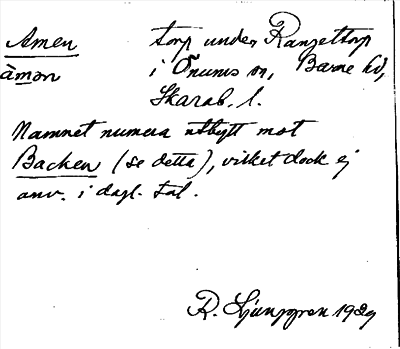 Amen torp under Ranzettorp
åmən i Önums sn, Barne hd,
Skarab. l.
Namnet numera utbytt mot
Backen (se detta), vilket dock ej
anv. i dagl. tal.
R. Ljunggren 1929